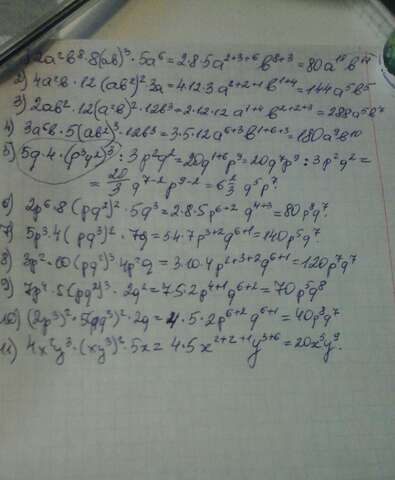 1) 2a²b⁸·8(ab)³·5a⁶=2·8·5a²⁺³⁺⁶b⁸⁺³=80a¹⁸b¹⁴
2) 4a²b·12(ab²)²3a=4·12·3a²⁺²⁺¹b¹⁺⁴=144a⁵b⁵
3) 2ab²·12(a²b)²·12b³=2·12·12a¹⁺⁴b²⁺²⁺³=288a⁵b⁷
4) 3a⁶b·5(ab²)³·12b³=3·5·12a⁶⁺³b¹⁺⁶⁺³=180a⁹b¹⁰
5) 5q·4·(p³q²)³:3p²q²=20q¹⁺⁶p⁹=20q⁷p⁹:3p²q²=
=20/3 q⁷⁻²p⁹⁻²=6 2/3 q⁵p⁷.
6) 2p⁶·8(pq²)²·5q³=2·8·5p⁶⁺²q⁴⁺³=80p⁸q⁷.
7) 5p³·4(pq³)²·7q=54·7p³⁺²q⁶⁺¹=140p⁵q⁷
8) 3p²·10(pq²)³4p²q=3·10·4p²⁺³⁺²q⁶⁺¹=120p⁷q⁷
9) 7p⁴·5(pq³)²·2q²=7·5·2p⁴⁺¹q⁶⁺²=70p⁵q⁸
10) (2p³)²·5(pq³)²·2q=4·5·2p⁶⁺²q⁶⁺¹=40p⁸q⁷
11) 4x²y³·(xy³)²·5x=4·5x²⁺²⁺¹y³⁺⁶=20x⁵y⁹.